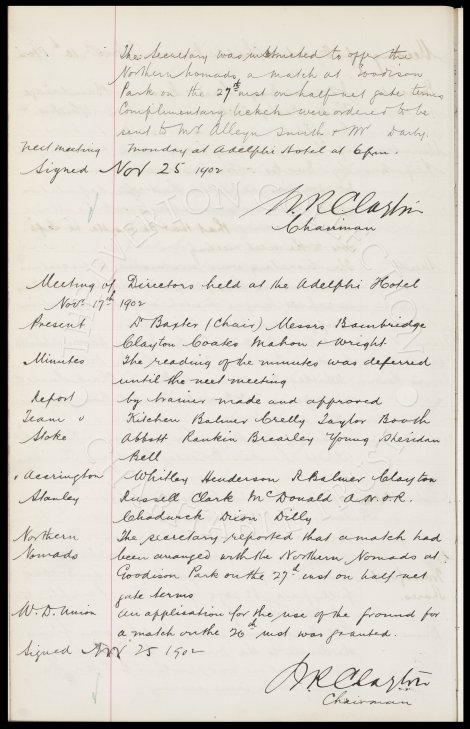 The Secretary was instructed to offer the
Northern Nomads a match at Goodison
Park on the 27th inst on half net gate terms
Complimentary tickets were ordered to be
sent to Mr Alleyn Smith & Mr Darby.
next meeting Monday at Adelphi Hotel at 6pm.
Signed Nov 25 1902
W. R. Clayton
Chairman
Meeting of Directors held at the Adelphi Hotel
Novr 17th 1902
Present Dr Baxter (Chair) Messrs Bainbridge
Clayton Coates Mahon & Wright
Minutes The reading of the minutes was deferred
until the next meeting
Report by trainer made and approved
Team v Kitchen Balmer Crelly Taylor Booth
Stoke Abbott Rankin Brearley Young Sheridan
Bell
v Accrington Whitley Henderson R Balmer Clayton
Stanley Russell Clark McDonald A.N.O.R.
Chadwick Dixon Dilly
Northern The secretary reported that a match had
Nomads been arranged with the Northern Nomads at
Goodison Park on the 27th inst on half net
gate terms
W. D. Union An application for the use of the ground for
a match on the 26th inst was granted.
Signed Nov 25 1902
W R Clayton
Chairman